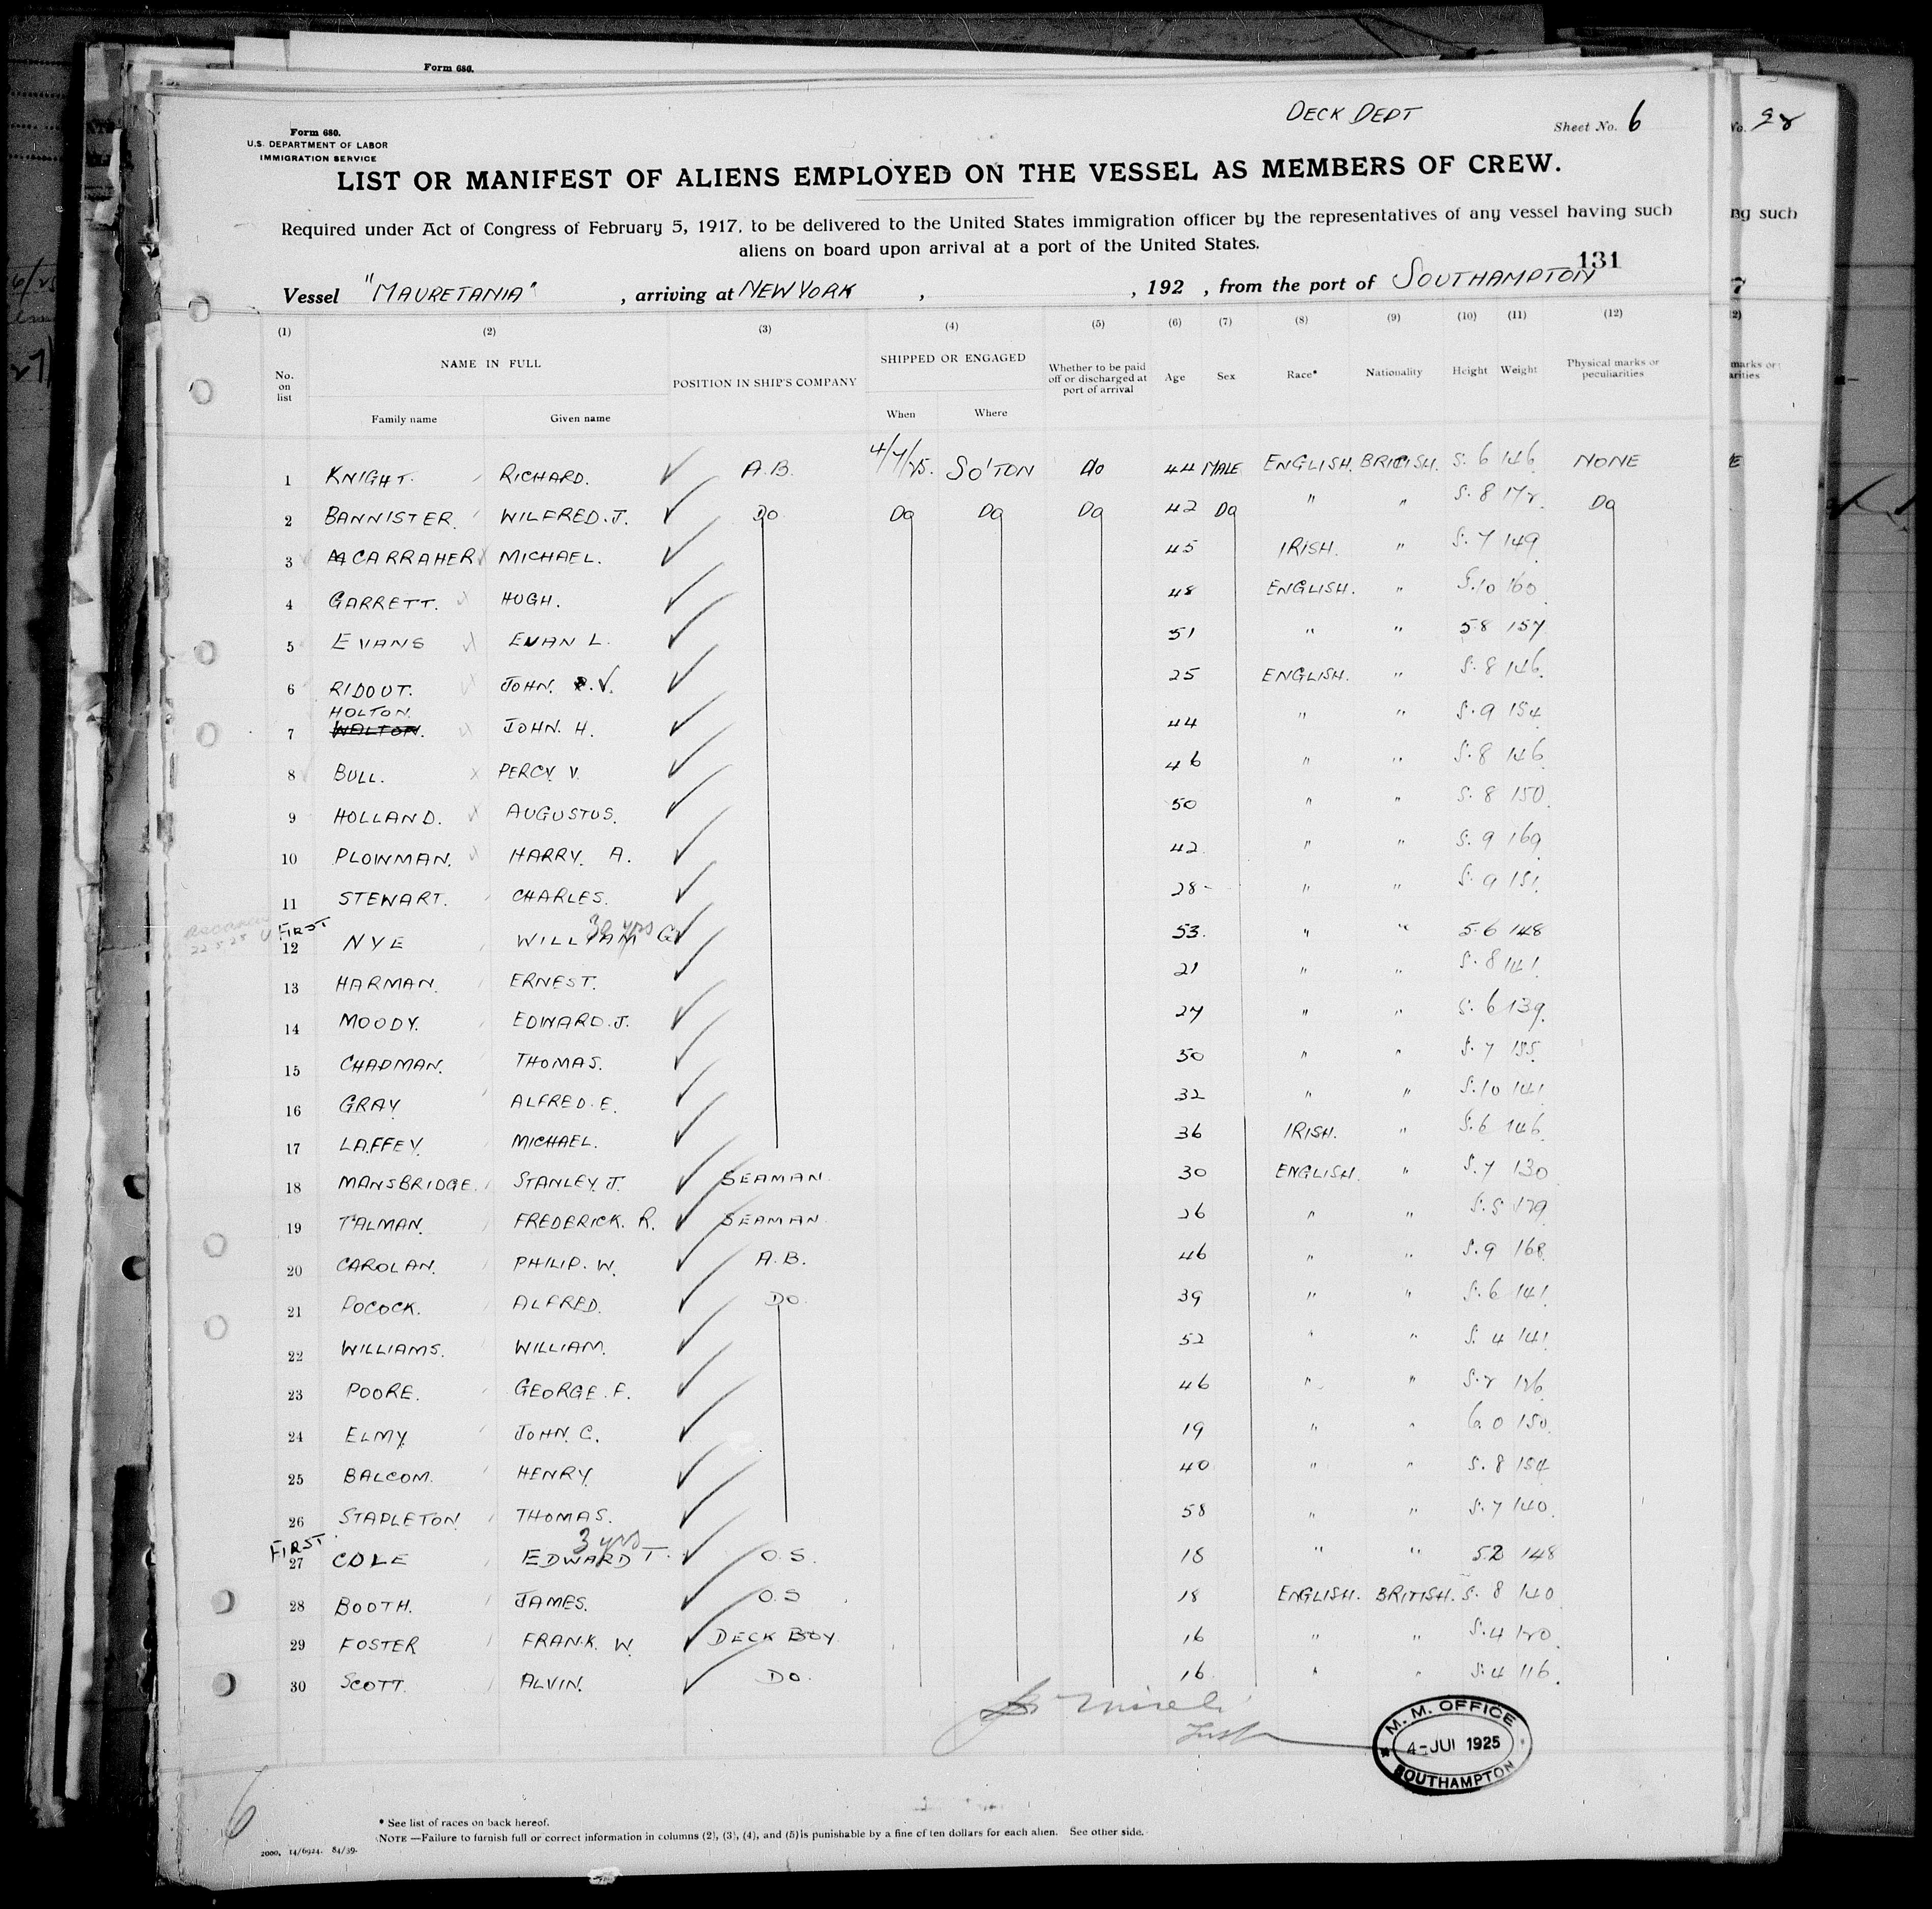 Form 686.
DECK DEPT
Sheet No. 6
Form 680.
U.S. DEPARTMENT OF LABOR
IMMIGRATION SERVICE
LIST OR MANIFEST OF ALIENS EMPLOYED ON THE VESSEL AS MEMBERS OF CREW.
Required under Act of Congress of February 5, 1917, to be delivered to the United States immigration officer by the representatives of any vessel having such
aliens on board upon arrival at a port of the United States.
131
Vessel "MAURETANIA", arriving at NEW YORK, , 192 , from the port of SOUTHAMPTON
(1) (2) (3) (4) (5) (6) (7) (8) (9) (10) (11) (12)
No. on list NAME IN FULL POSITION IN SHIP'S COMPANY SHIPPED OR ENGAGED Whether to be paid off or discharged at port of arrival Age Sex Race* Nationality Height Weight Physical marks or peculiarities
Family name Given name When Where
1 KNIGHT. RICHARD. A.B. 4/7/25. SO'TON do 44 MALE ENGLISH. BRITISH. 5.6 146 NONE
2 BANNISTER. WILFRED.J. DO Do Do Do 42 Do " " 5.8 172. Do
3 CARRAHER MICHAEL. 45 IRISH. " 5.7 149
4 GARRETT. HUGH. 48 ENGLISH. " 5.10 160
5 EVANS EVAN L. 51 " " 5.8 157
6 RIDOUT. JOHN. V. 25 ENGLISH. " 5.8 146.
HOLTON.
7 WALTON. JOHN. H. 44 " " 5.9 154
8 BULL. PERCY V. 46 " " 5.8 146
9 HOLLAND. AUGUSTUS. 50 " " 5.8 150.
10 PLOWMAN. HARRY A. 42 " " 5.9 169
11 STEWART. CHARLES. 28 " " 5.9 151.
FIRST 30 yrs
12 NYE WILLIAM G 53. " " 5.6 148
13 HARMAN. ERNEST. 21 " " 5.8 141.
14 MOODY. EDWARD.J. 27 " " 5.6 139.
15 CHAPMAN. THOMAS. 50 " " 5.7 155.
16 GRAY ALFRED.E. 32 " " 5.10 141
17 LAFFEY. MICHAEL. 36 IRISH. " 5.6 146.
18 MANSBRIDGE. STANLEY.J. SEAMAN. 30 ENGLISH. " 5.7 130
19 TALMAN. FREDERICK. R. SEAMAN. 26 " " 5.5 129.
20 CAROLAN. PHILIP. W. A.B. 46 " " 5.9 168
21 POCOCK. ALFRED. DO 39 " " 5.6 141.
22 WILLIAMS. WILLIAM. 52 " " 5.4 141
23 POORE. GEORGE.F. 46 " " 5.2 126.
24 ELMY. JOHN. C. 19 " " 6.0 150.
25 BALCOM. HENRY. 40 " " 5.8 154
26 STAPLETON. THOMAS. 58 " " 5.7 140.
FIRST 3 yrs
27 COLE EDWARD T. O.S. 18 " " 148
28 BOOTH. JAMES. O.S 18 ENGLISH. BRITISH. 5.8 140
29 FOSTER FRANK. W. DECK BOY. 16 " " 5.4 120.
30 SCOTT. ALVIN. DO. 16. " " 5.4 116.
M. M. OFFICE
4-JUL 1925
SOUTHAMPTON
6
* See list of races on back hereof.
NOTE —Failure to furnish full or correct information in columns (2), (3), (4), and (5) is punishable by a fine of ten dollars for each alien. See other side.
2000, 14/6924. 84/39.